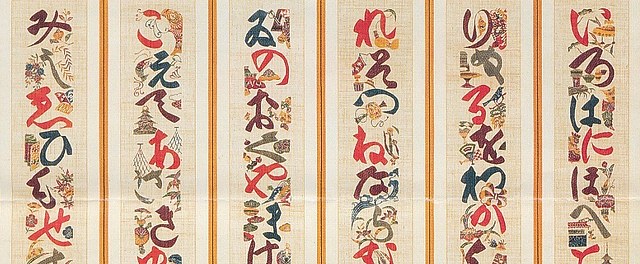 いろはにほへと
りぬるをわかよ
れそつねならむ
ゐのおくやまけ
こえてあさきゆ
みしゑひもせ